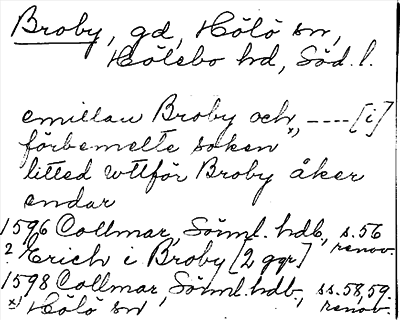 Broby, gd, Hölö sn,
Hölebo hd, Söd. l.
emillan Broby och x), ---- [i]
förbemelte soken
litted wttför Broby åker
endar
1596 Collmar, Sörml. hdb, s. 56
renov.
2 Erich i Broby [2 ggr]
1598 Collmar, Sörml. hdb., ss. 58, 59.
renov.
x) Hölö sn